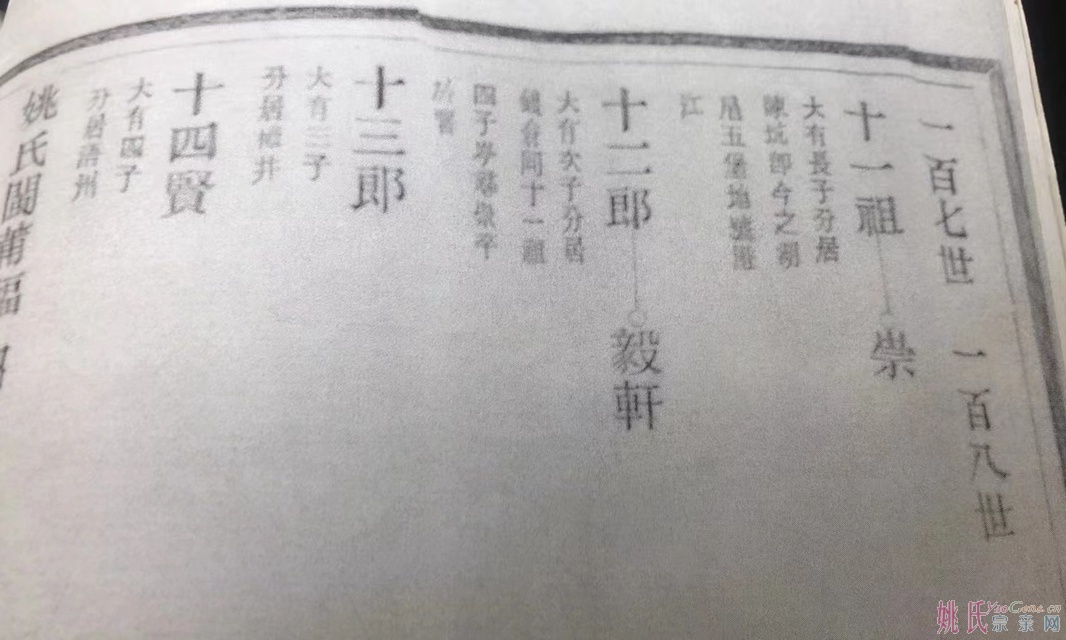 一百七世
一百八世
十一祖
崇
大有長子分居
陳坑即今之湖
尾五堡地號浯
江
十二郎
毅軒
大有次子分居
同十一祖
四子
十三郎
大有三子
分居
十四賢
大有四子
分居語州
姚氏閩莆福
姚氏宗亲网
YaoGens.cn